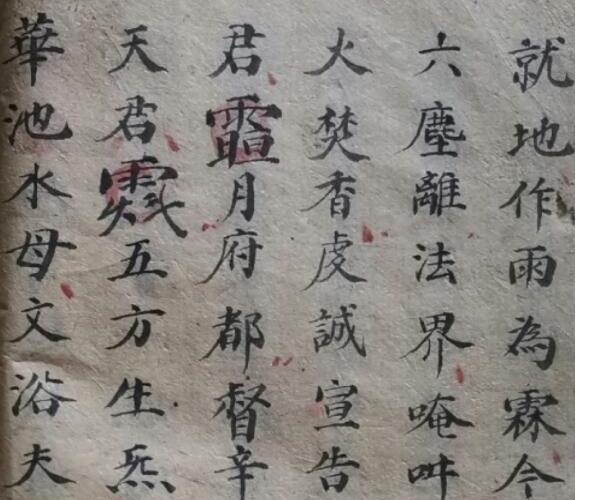 就地作雨為霖令
六塵離法界唵吽
火焚香虔誠宣告
君月府都督辛
天君五方生炁
華池水母文浴夫